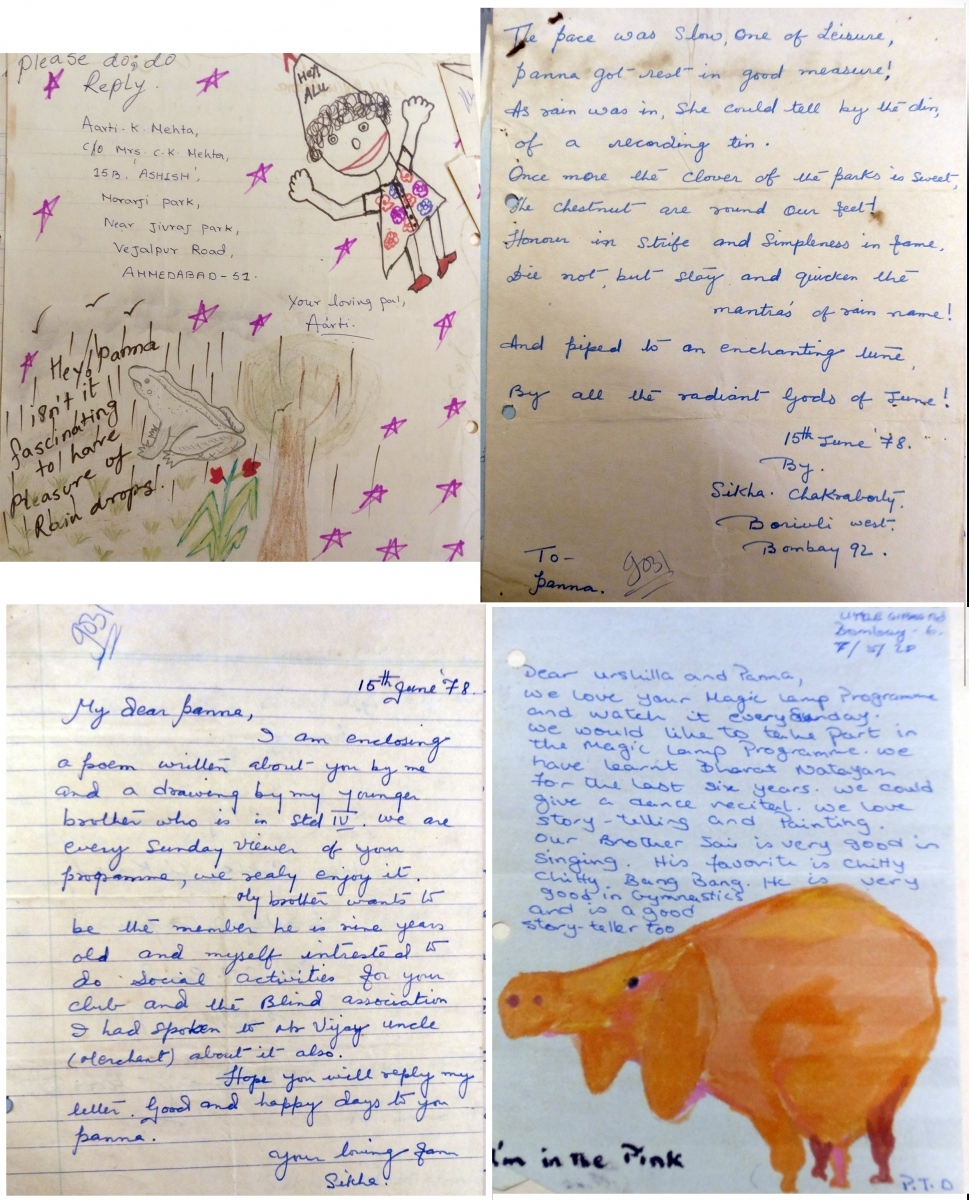 please do; do
Reply.
Hey!
ALU
Aarti. K. Mehta,
C/o Mrs. C. K. Mehta,
15B, 'ASHISH',
Morarji park,
Near Jivraj park,
Vejalpur Road,
AHMEDABAD - 51.
Your loving pal,
Aarti.
Hey! panna
isn't it
fascinating
to have
pleasure of
Rain drops.
The pace was Slow, One of Leisure,
panna got rest in good measure!
As rain was in, She could tell by the din,
of a recording tin.
Once more the clover of the parks is Sweet,
The chestnut are round our feet!
Honour in Strife and Simpleness in fame,
Die not, but stay and quicken the
mantra's of rain name!
And piped to an enchanting tune,
By all the radiant Gods of June!
15th June '78.
By.
Sikha. Chakraborty.
Borivli west.
Bombay 92.
To-
panna.
15th June '78.
My dear panna,
I am enclosing
a poem written about you by me
and a drawing by my younger
brother who is in Std IV. we are
every Sunday viewer of your
programme, we realy enjoy it.
My brother wants to
be the member he is nine years
old and myself intrested to
do Social activities for your
club and the Blind association
I had spoken to Mr Vijay uncle
(Merchant) about it also.
Hope you will reply my
letter. Good and happy days to you
panna.
Your loving fan
Sikha.
Bombay - 6.
Dear Urshilla and Panna,
we love your Magic Lamp Programme
and watch it every Sunday.
we would like to take Part in
the Magic Lamp Programme. we
have learnt Bharat Natayan
For the last six years. we could
give a dance recital. we love
story-telling and Painting.
Our Brother Sai is very good in
Singing. His favorite is Chitty
Chitty Bang Bang. He is very
good in Gymnastics
and is a good
story-teller too
I'm in the Pink
P.T.O